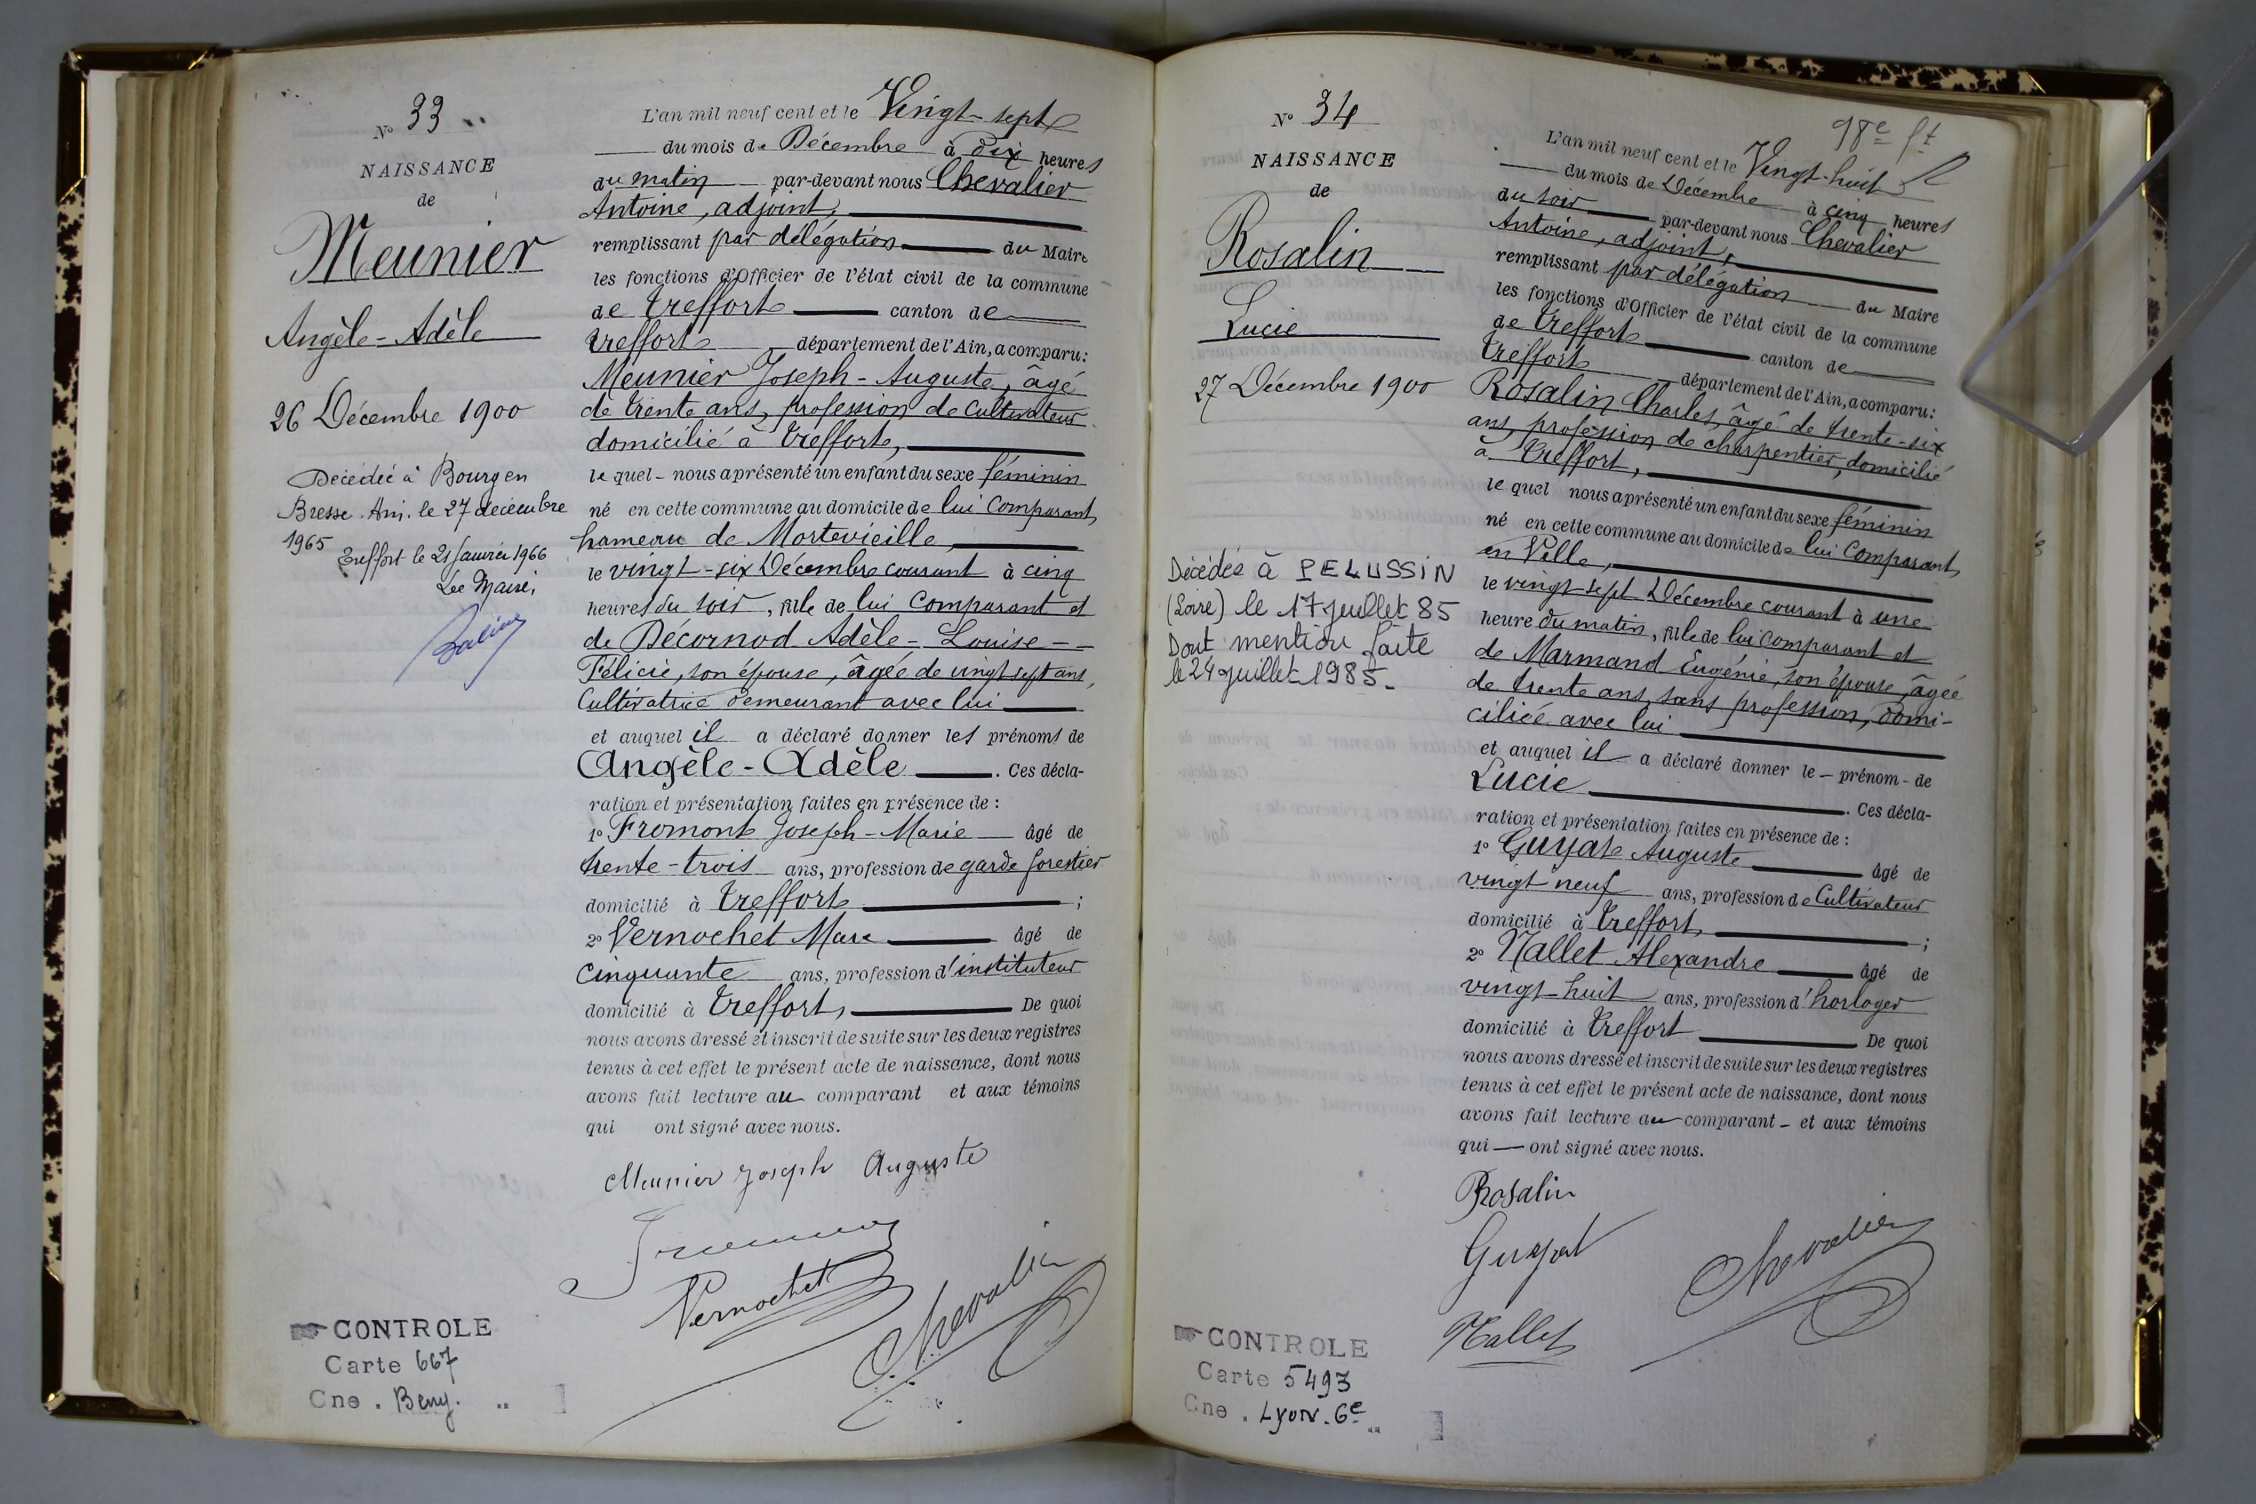 N° 33
NAISSANCE
de
Meunier
Angèle-Adèle
26 Décembre 1900
Décédée à Bourg en
Bresse. Ain. le 27 décembre
1965
Treffort le 21 Janvier 1966
Le Maire,
CONTROLE
Carte 667
Cne. Beny.
L'an mil neuf cent et le Vingt-sept
du mois de Décembre à dix heures
du matin par-devant nous Chevalier
Antoine, adjoint,
remplissant par délégation du Maire
les fonctions d'Officier de l'état civil de la commune
de Treffort canton de
Treffort département de l'Ain, a comparu:
Meunier Joseph-Auguste, âgé
de trente ans, profession de Cultivateur
domicilié à Treffort,
lequel - nous a présenté un enfant du sexe féminin
né en cette commune au domicile de lui Comparant,
hameau de Mortevieille,
le vingt-six Décembre courant à cinq
heures du soir, fille de lui Comparant et
de Décornod Adèle-Louise-
Félicie, son épouse, âgée de vingt sept ans,
Cultivatrice demeurant avec lui
et auquel il a déclaré donner les prénoms de
Angèle-Adèle. Ces décla-
ration et présentation faites en présence de :
1° Fromont Joseph-Marie âgé de
trente-trois ans, profession de garde forestier
domicilié à Treffort ;
2° Vernochet Marc âgé de
Cinquante ans, profession d'instituteur
domicilié à Treffort, De quoi
nous avons dressé et inscrit de suite sur les deux registres
tenus à cet effet le présent acte de naissance, dont nous
avons fait lecture au comparant et aux témoins
qui ont signé avec nous.
Meunier Joseph Auguste
Vernochet
Chevalier
98e ft
N° 34
NAISSANCE
de
Rosalin
Lucie
27 Décembre 1900
Décédée à PELUSSIN
(Loire) le 17 juillet 85
Dont mention faite
le 24 juillet 1985.
CONTROLE
Carte 5493
Cne. Lyon. 6e
L'an mil neuf cent et le Vingt-huit
du mois de Décembre à cinq heures
du soir par-devant nous Chevalier
Antoine, adjoint,
remplissant par délégation du Maire
les fonctions d'Officier de l'état civil de la commune
de Treffort canton de
Treffort département de l'Ain, a comparu:
Rosalin Charles, âgé de trente-six
ans, profession de charpentier, domicilié
à Treffort,
lequel nous a présenté un enfant du sexe féminin
né en cette commune au domicile de lui Comparant,
en Ville,
le vingt-sept Décembre courant à une
heure du matin, fille de lui comparant et
de Marmand Eugénie, son épouse, âgée
de trente ans, sans profession, domi-
ciliée avec lui
et auquel il a déclaré donner le - prénom - de
Lucie. Ces décla-
ration et présentation faites en présence de :
1° Guyat Auguste âgé de
vingt neuf ans, profession de Cultivateur
domicilié à Treffort, ;
2° Nallet Alexandre âgé de
vingt-huit ans, profession d'horloger
domicilié à Treffort De quoi
nous avons dressé et inscrit de suite sur les deux registres
tenus à cet effet le présent acte de naissance, dont nous
avons fait lecture au comparant - et aux témoins
qui — ont signé avec nous.
Rosalin
Guyat
Chevalier
Nallet